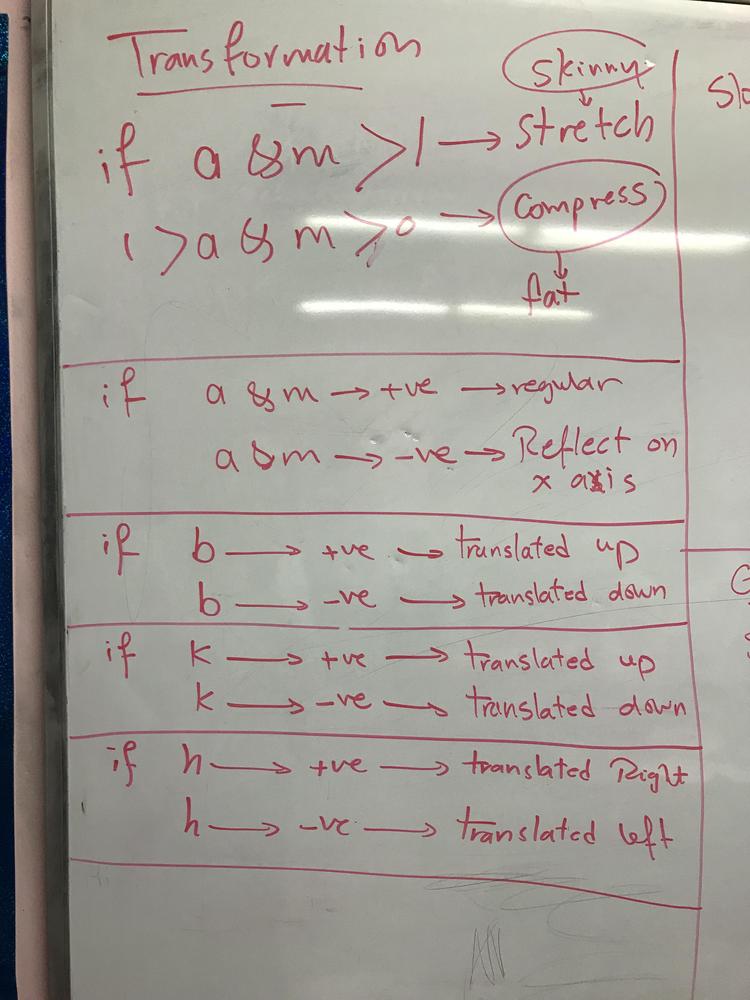 Transformation
skinny
if a & m > 1 → stretch
1 > a & m > 0 → Compress
↓
fat
if a & m → +ve → regular
a & m → -ve → Reflect on
x axis
if b → +ve → translated up
b → -ve → translated down
if k → +ve → translated up
k → -ve → translated down
if h → +ve → translated Right
h → -ve → translated left